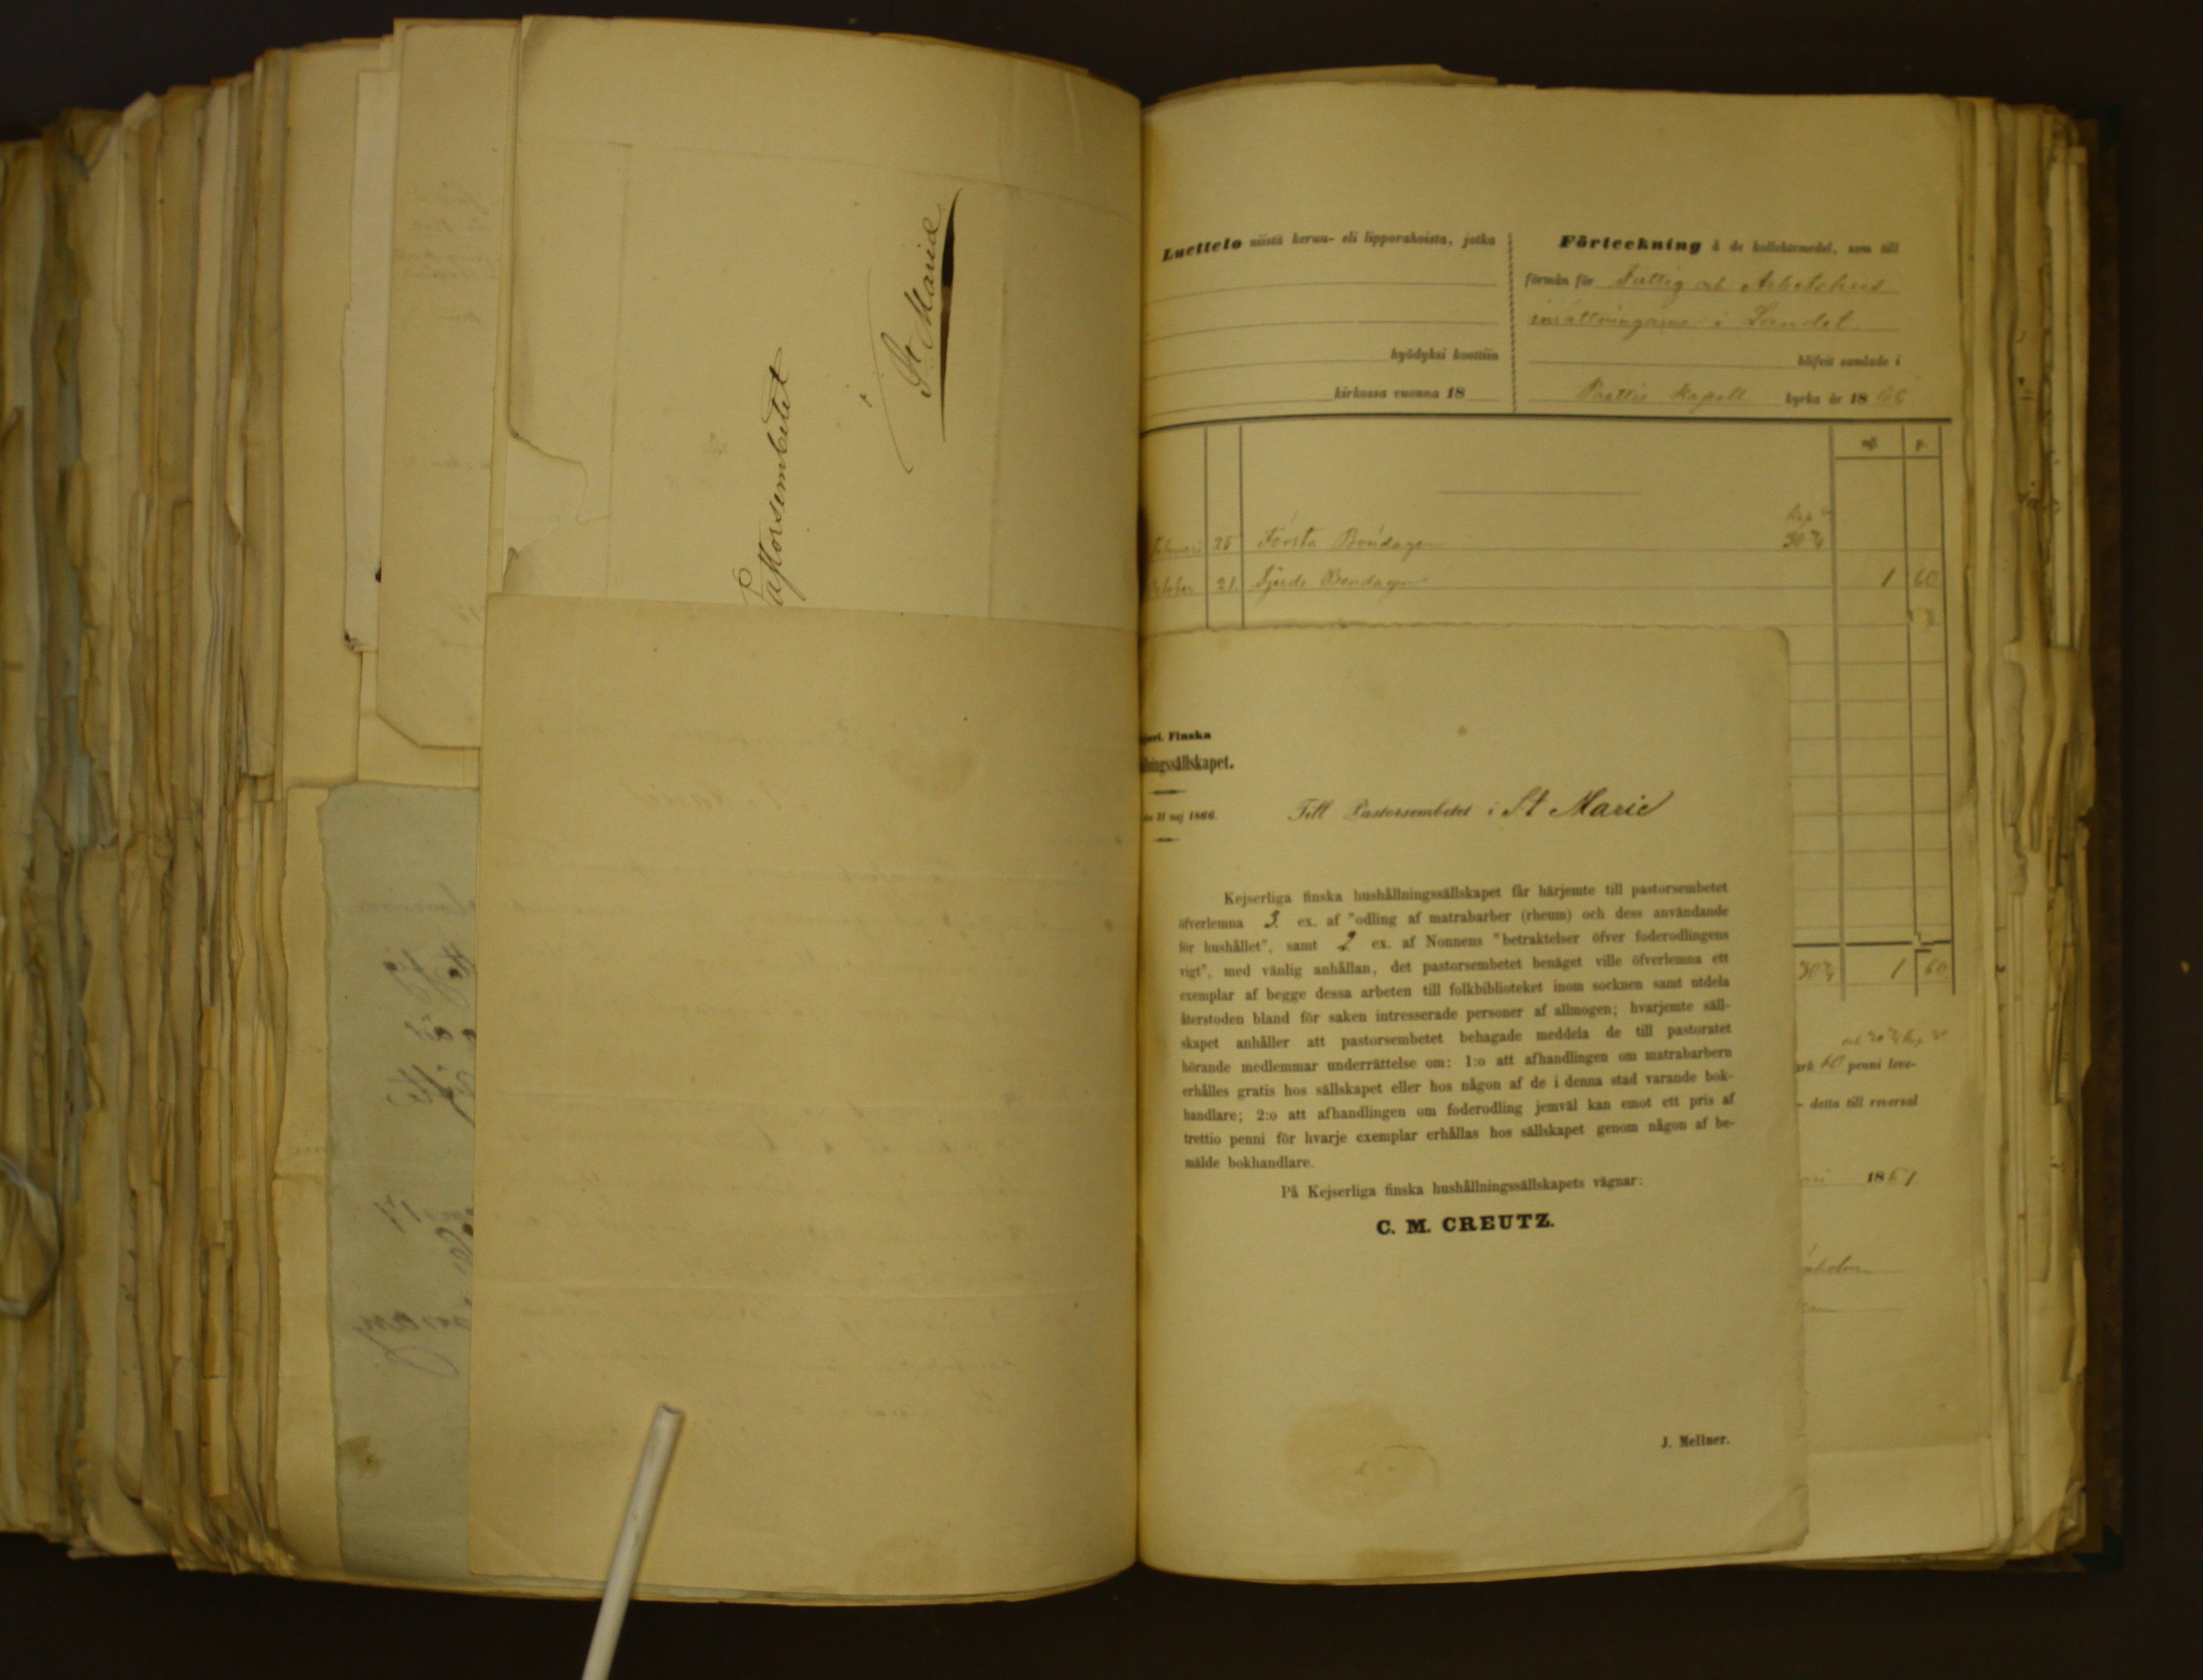 Pastorsembetet
i
St Marie
Luettelo niistä keruu- eli lipporahoista, jotka
hyödyksi koottiin
kirkossa vuonna 18
Förteckning å de kollektmedel, som till
förmån för Fattig och Arbetshus
inrättningarne i Landet
blifvit samlade i
Paattis Kapell kyrka år 1866
mk p.
Februari 25 Första Böndagen 30 3/4
October 21. Fjerde Böndagen 1 60
30 3/4 1 60
60 penni leve-
detta till reversal
18
Finska
ningssällskapet.
31 maj 1866.
Till Pastorsembetet i St Marie
Kejserliga finska hushållningssällskapet får härjemte till pastorsembetet
öfverlemna 3 ex. af "odling af matrabarber (rheum) och dess användande
för hushållet", samt 2 ex. af Nonnens "betraktelser öfver foderodlingens
vigt", med vänlig anhållan, det pastorsembetet benäget ville öfverlemna ett
exemplar af begge dessa arbeten till folkbiblioteket inom socknen samt utdela
återstoden bland för saken intresserade personer af allmogen; hvarjemte säll-
skapet anhåller att pastorsembetet behagade meddela de till pastoratet
hörande medlemmar underrättelse om: 1:o att afhandlingen om matrabarbern
erhålles gratis hos sällskapet eller hos någon af de i denna stad varande bok-
handlare; 2:o att afhandlingen om foderodling jemväl kan emot ett pris af
trettio penni för hvarje exemplar erhållas hos sällskapet genom någon af be-
mälde bokhandlare.
På Kejserliga finska hushållningssällskapets vägnar:
C. M. CREUTZ.
J. Mellner.